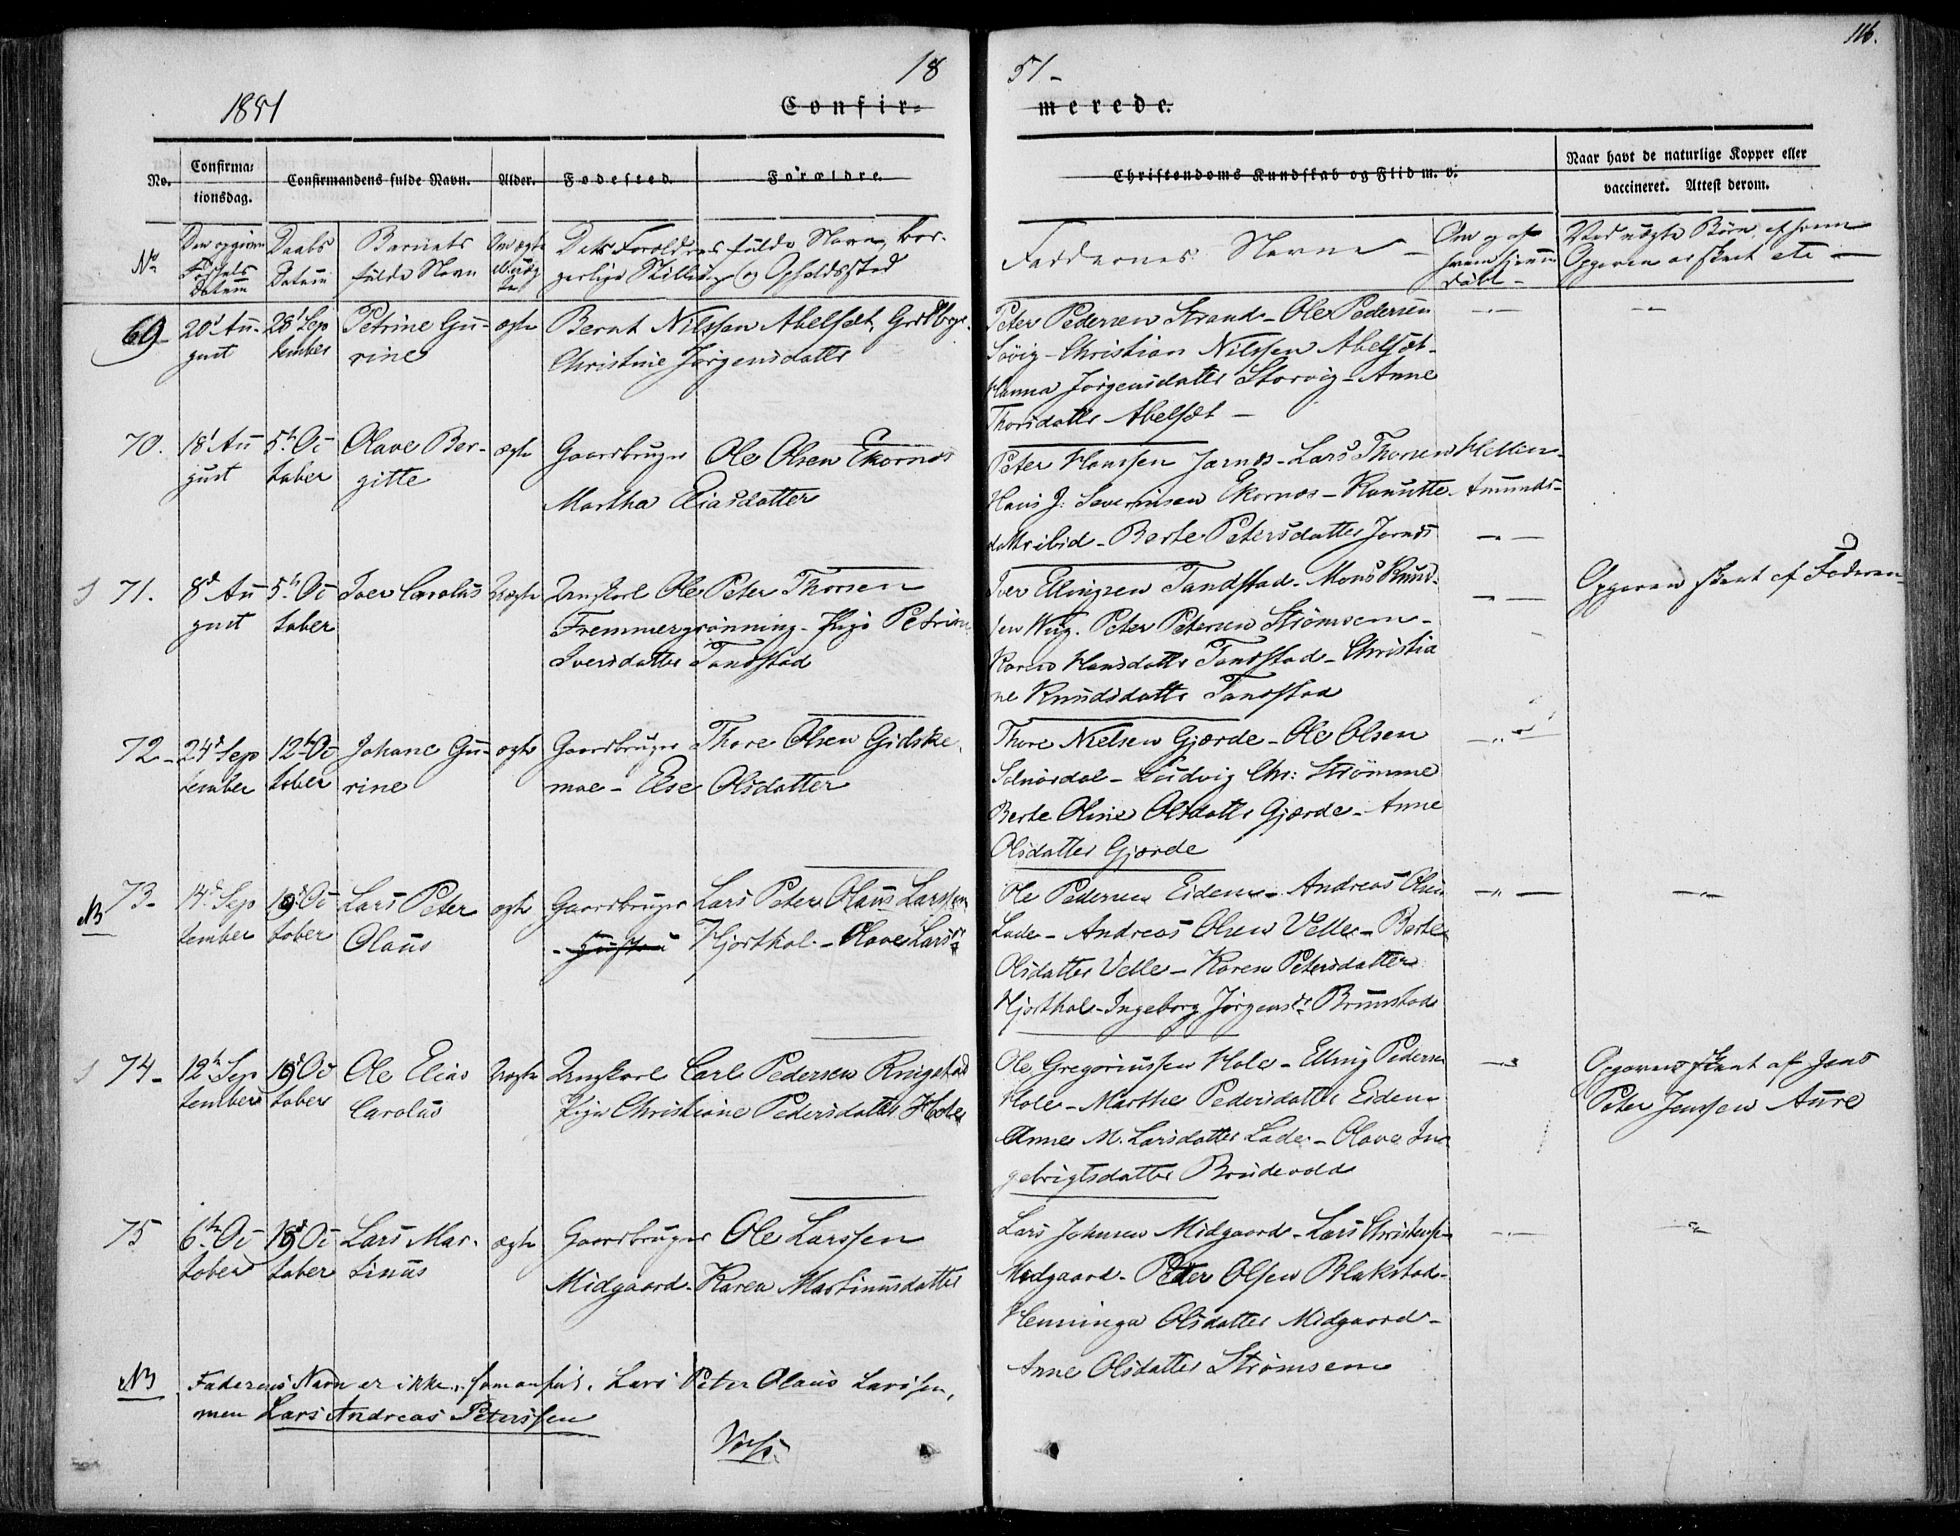 116.
18 51-
1851 Confir= merede.
No. Confirma= tionsdag. Confirmandens fulde Navn. Alder. Fødested. Forældre. Christendoms Kundskab og Flid m. v. Naar havt de naturlige Kopper eller vaccineret. Attest derom.
No Den opgivne Fødsels Datum Daabs Datum Barnets fulde Navn Om ægte el. uægte Dets Forældres fulde Navne, bor-
gerlige Stilling og Opholdssted
Faddernes Navne Om og af hvem hjemmedøbt Ved uægte Børn, af hvem
Opgaven er skeet etc
69 20' Au- 28' Sep Petrine Gu- ægte Bernt Nilssen Abelsæt, Grdbrgr.
gust tember rine Christine Jørgensdatter
Peter Pedersen Strand - Ole Pedersen
Søvig - Christian Nilssen Abelsæt -
Hanna Jørgensdatter Storvig - Anne
Thorsdatter Abelsæt -
70. 18' Au 5te Oc Olave Ber- ægte Gaardbruger Ole Olsen Ekornæs
gust tober gitte Martha Eliasdatter
Peter Hanssen Jarnæs - Lars Thorsen Kletten -
Hans J: Severinsen Ekornæs - Kanutte Amunds-
datter ibid - Berte Petersdatter Jarnæs
71. 8d Au 5te Oc Iver Carolus Uægte Ungkarl Ole Peter Thorsen
gust tober Fremmergrønning - Pige Petrine
Iversdatter Tandstad
Iver Ellingsen Tandstad - Mons Knud-
sen Wiig. Peter Petersen Strømsem -
Karen Hansdatter Tandstad - Christia
ne Knudsdatter Tandstad
Opgaven skeet af Faderen
72 - 24d Sep 12te Oc Johane Gu- ægte Gaardbruger Thore Olsen Gidske
tember tober rine moe - Else Olsdatter
Thore Nielsen Gjærde - Ole Olsen
Solnørdal - Ludvig Chr: Strømme
Berte Oline Olsdatter Gjærde - Anne
Olsdatter Gjærde
NB 73 - 14d Sep 19d Oc Lars Peter ægte Gaardbruger Lars Peter Olaus Larssen
tember tober Olaus Hjorthol - Olave Larsd.
Ole Pedersen Eidem - Andreas Olsen
Lade - Andreas Olsen Velle - Berte
Olsdatter Velle - Karen Petersdatter
Hjorthol - Ingeborg Jørgensdr Brunstad
74 - 12te Sep 19d Oc Ole Elias Uægte Ungkarl Carl Pedersen Ringstad
tember tober Carolus Pige Christiane Pedersdatter Hole
Ole Gregoriussen Hole - Elling Pedersen
Hole - Marthe Pedersdatter Eidem
Anne M. Larsdatter Lade - Olave In
gebrigtsdatter Brudevold
Opgaven skeet af Jens
Peter Jenssen Aure
75 6te Oc 19d Oc Lars Mar- ægte Gaardbruger Ole Larssen
tober tober tinus Midgaard - Karen Martinusdatter
Lars Johnsen Midgaard - Lars Christensen
Midgaard - Peder Olsen Blakstad -
Henninga Olsdatter Midgaard -
Anne Olsdatter Strømsem
NB Faderens Navn er ikke, som anført, Lars Peter Olaus Larssen,
men Lars Andreas Peterssen